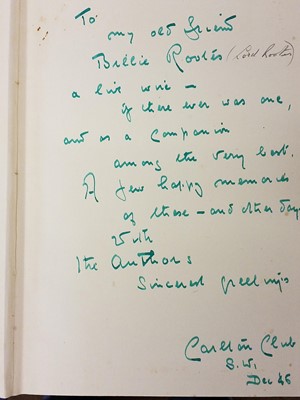 To
my old friend
Billie Rootes (Lord Rootes)
a live wire –
if there ever was one,
and as a companion
among the very best.
A few happy memories
of these – and other days
With
the Authors
Sincere greetings
Carlton Club
S.W.
Dec 46